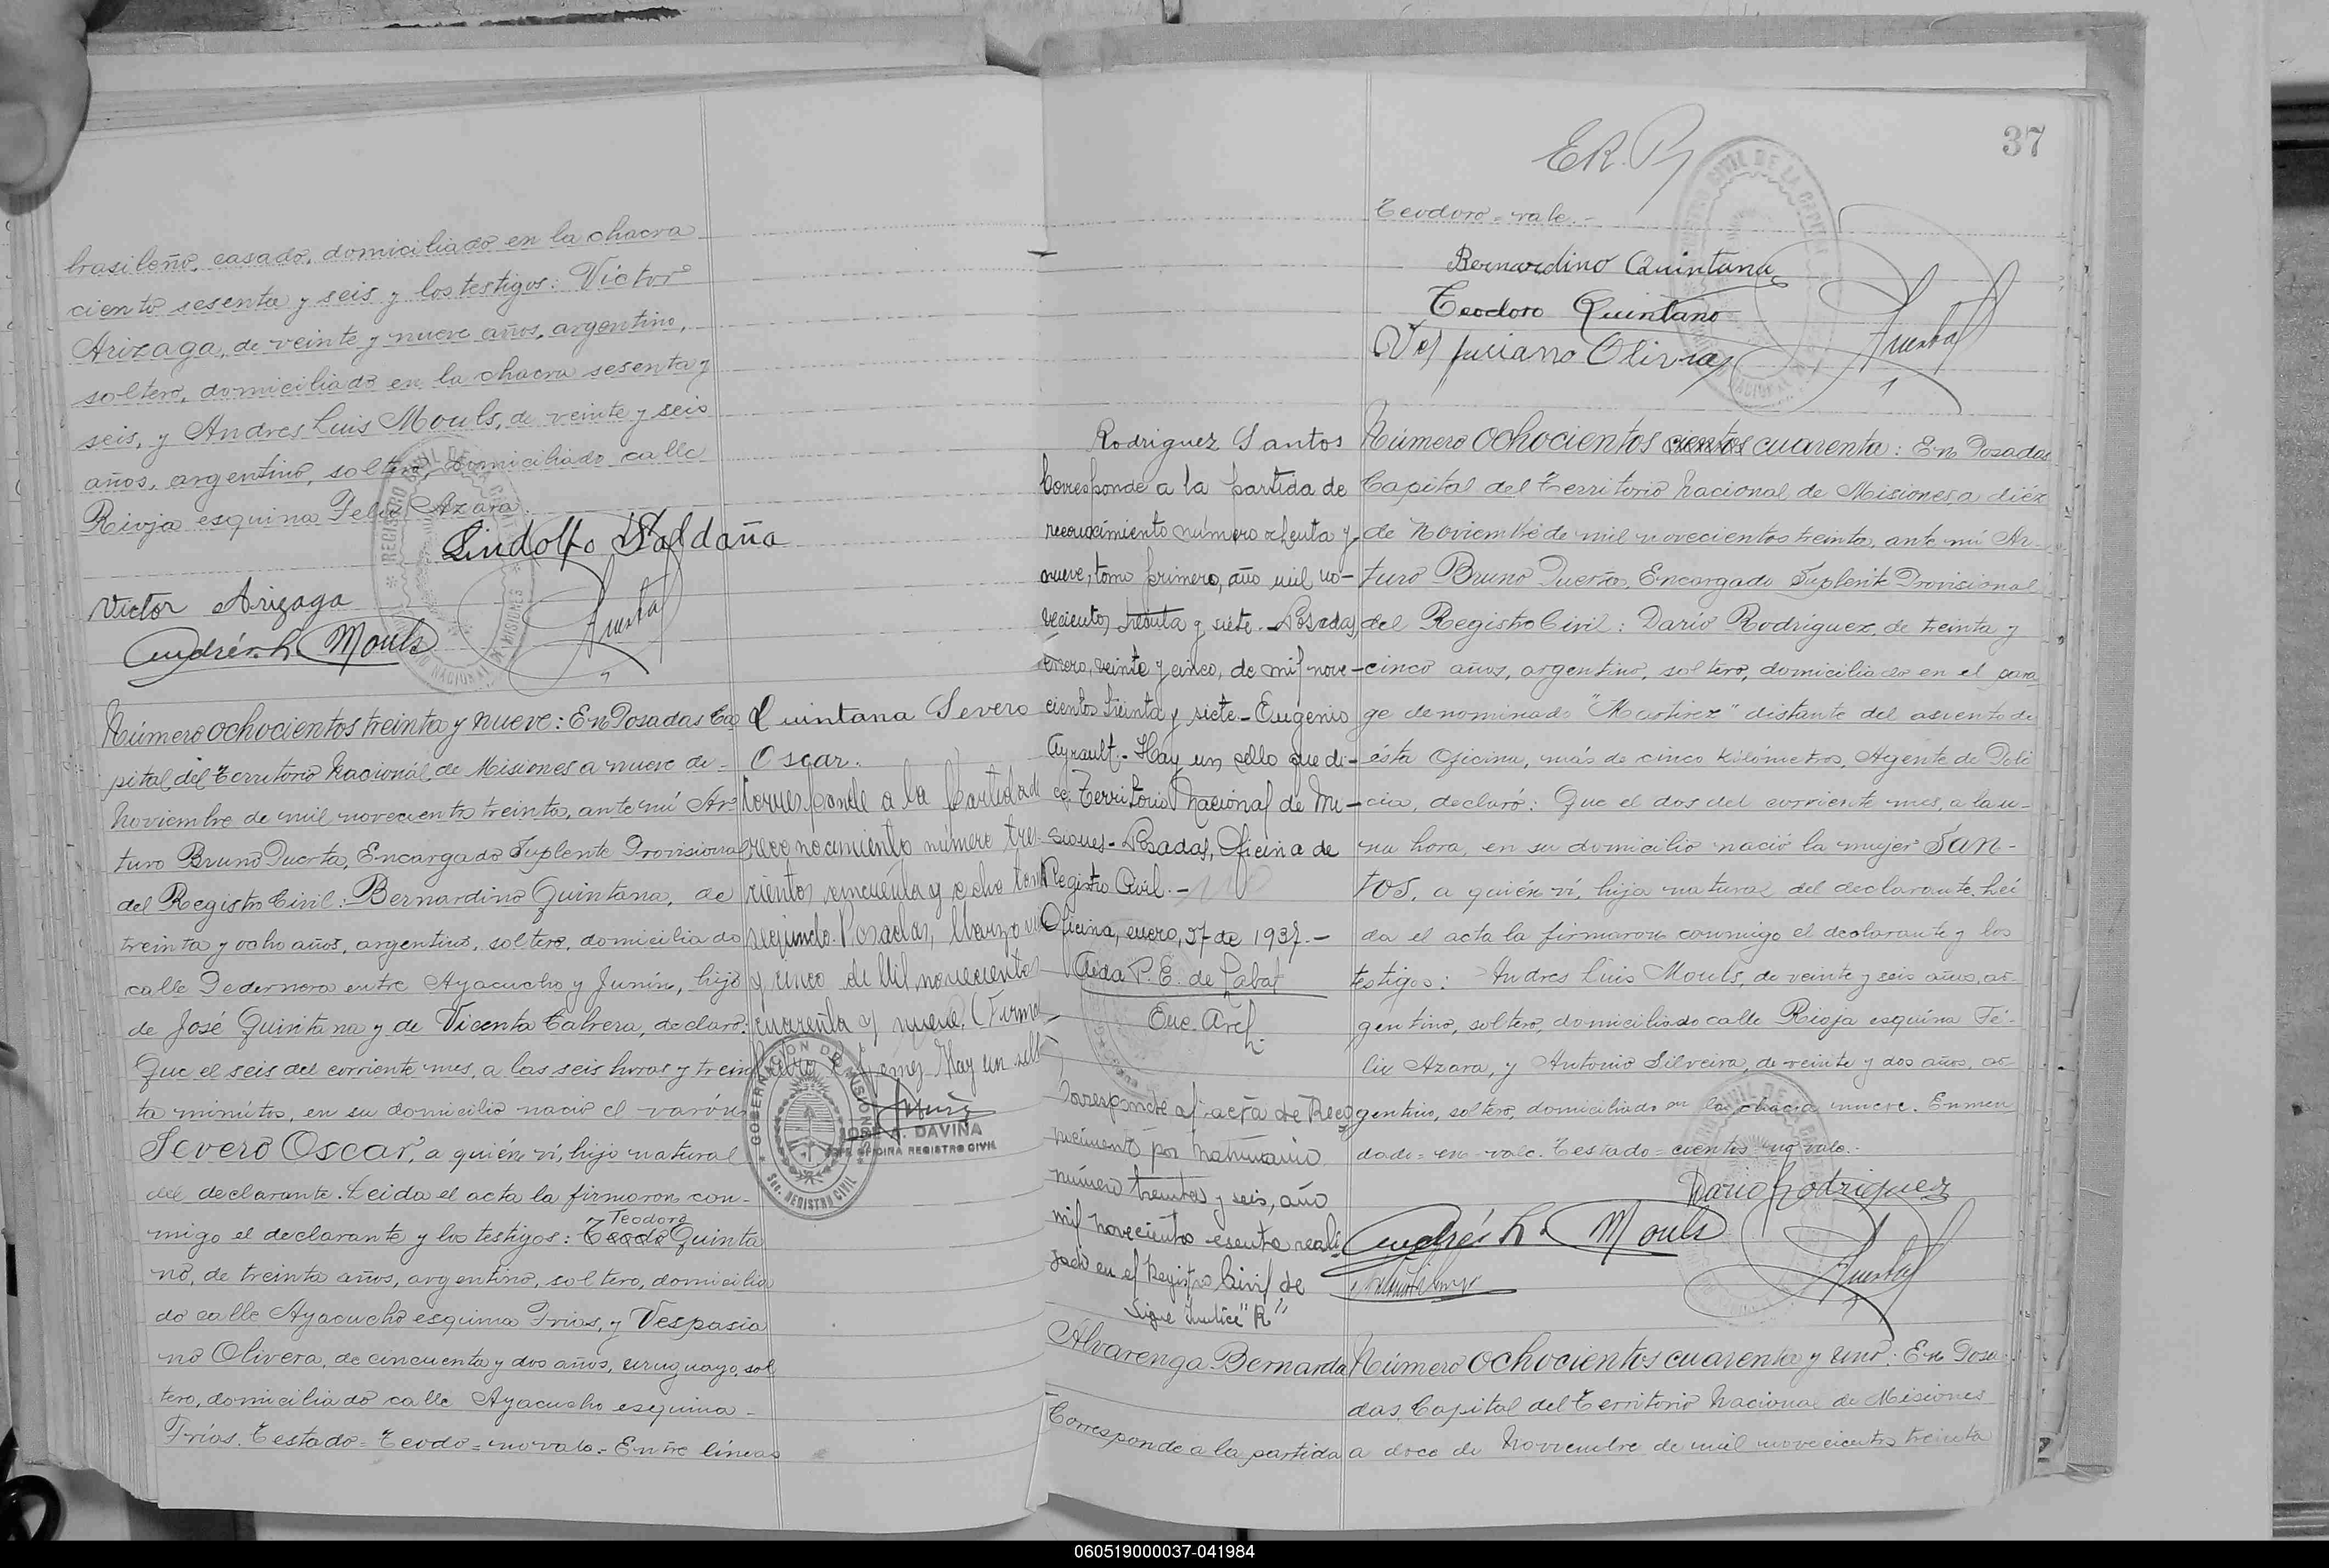 brasileño, casado, domiciliado en la chacra
ciento sesenta y seis y los testigos: Víctor
Arizaga, de veinte y nueve años, argentino,
soltero, domiciliado en la chacra sesenta y
seis, y Andres Luis Mouls, de veinte y seis
años, argentino, soltero, domiciliado calle
Rioja esquina Felix Azara.
Lindolfo Saldaña
Victor Arizaga
Andrés L. Mouls
Número ochocientos treinta y nueve: En Posadas Ca
pital del Territorio Nacional de Misiones a nueve de
Noviembre de mil novecientos treinta, ante mí Ar
turo Bruno Puerta, Encargado Suplente Provisional
del Registro Civil: Bernardino Quintana, de
treinta y ocho años, argentino, soltero, domiciliado
calle Pedernera entre Ayacucho y Junín, hijo
de José Quintana y de Vicenta Cabrera, declaró:
Que el seis del corriente mes, a las seis horas y trein
ta minutos, en su domicilio nació el varón
Severo Oscar, a quién ví, hijo natural
del declarante. Leida el acta la firmaron con-
migo el declarante y los testigos: Teodo Quinta
Teodoro
no, de treinta años, argentino, soltero, domicilia
do calle Ayacucho esquina Frias, y Vespasia
no Olivera, de cincuenta y dos años, uruguayo, sol
tero, domiciliado calle Ayacucho esquina
Frías. Testado=Teodo=no vale.- Entre líneas
Quintana Severo
Oscar.
Corresponde a la partida de
reconocimiento número tres
cientos cincuenta y ocho tomo
segundo. Posadas, Marzo
y cinco de Mil novecientos
cuarenta y nueve. (Firma
Gomez Hay un sello
GOBERNACION DE MISIONES
Sec. REGISTRO CIVIL
JOSE A. DAVIÑA
JEFE OFICINA REGISTRO CIVIL
37
E.R.P.
Teodoro=vale.-
Bernardino Quintana
Teodoro Quintano
Vespuciano Olivera
Rodriguez Santos
Corresponde a la partida de
reconocimiento número ochenta y
nueve, tomo primero, año mil no-
vecientos treinta y siete.- Posadas
enero, veinte y cinco, de mil nove-
cientos treinta y siete- Eugenio
Ayrault.- Hay un sello que di-
ce: Territorio Nacional de Mi-
siones- Posadas, Oficina de
Registro Civil.-
Oficina, enero, 27 de 1937.-
Aida P. E. de Labat
Enc. Arch.
Corresponde al acta de Reco
nocimiento por matrimonio
número treinta y seis, año
mil novecientos sesenta reali
zado en el Registro Civil de
Sigue Indice "R"
Número ochocientos cientos cuarenta: En Posadas
Capital del Territorio Nacional de Misiones, a diéz
de Noviembre de mil novecientos treinta, ante mí Ar-
turo Bruno Puerta, Encargado Suplente Provisional
del Registro Civil: Darío Rodriguez, de treinta y
cinco años, argentino, soltero, domiciliado en el para
ge denominado "Martirez" distante del asiento de
ésta Oficina, más de cinco kilómetros, Agente de Poli
cía, declaró: Que el dos del corriente mes, a la u-
na hora, en su domicilio nació la mujer San-
tos, a quién ví, hija natural del declarante. Lei
da el acta la firmaron conmigo el declarante y los
testigos: Andres Luis Mouls, de veinte y seis años, ar-
gentino, soltero, domiciliado calle Rioja esquina Fé-
lix Azara, y Antonio Silveira, de veinte y dos años, ar-
gentino, soltero, domiciliado en la chacra nueve. Enmen
dado=en=vale. Testado=cientos=no vale.-
Dario Rodriguez
Andrés L. Mouls
Alvarenga Bernarda
Corresponde a la partida
Número ochocientos cuarenta y uno: En Posa
das, Capital del Territorio Nacional de Misiones
a doce de Noviembre de mil novecientos treinta
060519000037-041984